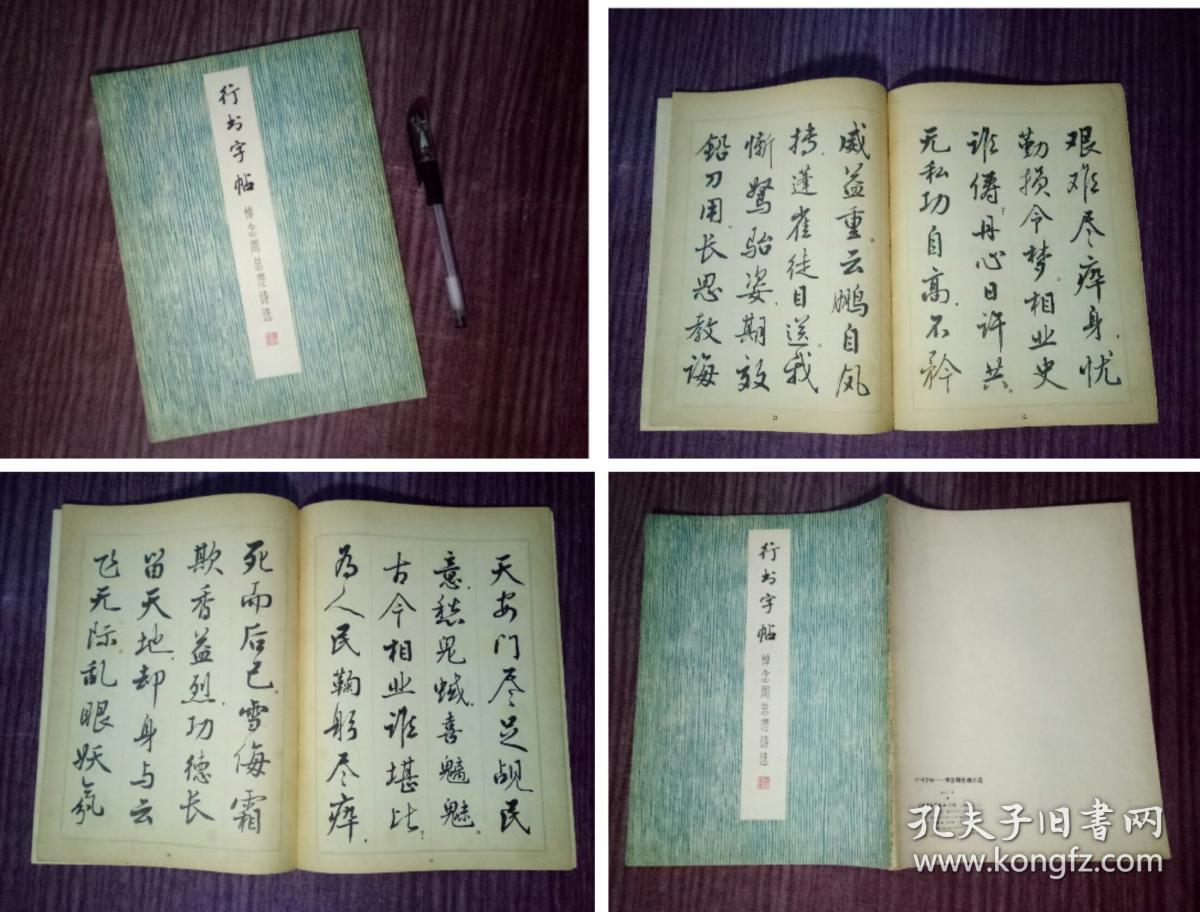 行书字帖
悼念周总理诗选
艰难尽瘁身，忧
勤损令梦。相业史
谁俦？丹心日许共。
无私功自高，不矜
威益重。云鹏自风
抟，蓬雀徒目送。我
惭驽骀姿，期效
铅刀用。长思教诲
天安门尽足觇民
意，愁鬼蜮，喜魑魅。
古今相业谁堪比？
为人民鞠躬尽瘁，
死而后已。雪侮霜
欺香益烈，功德长
留天地。却身与云
飞无际。乱眼妖氛
行书字帖
悼念周总理诗选
行书字帖——悼念周总理诗选
孔夫子旧书网
www.kongfz.com